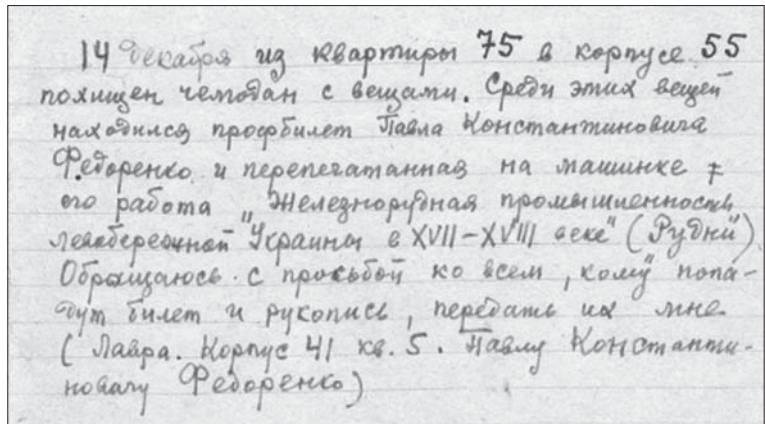 14 декабря из квартиры 75 в корпусе 55
похищен чемодан с вещами. Среди этих вещей
находился профбилет Павла Константиновича
Федоренко и перепечатанная на машинке
его работа „Железнорудная промышленность
левобережной Украины в XVII–XVIII веке" (Рудни")
Обращаюсь с просьбой ко всем, кому попа-
дут билет и рукопись, передать их мне
(Лавра. Корпус 41 кв. 5. Павлу Константи-
новичу Федоренко)